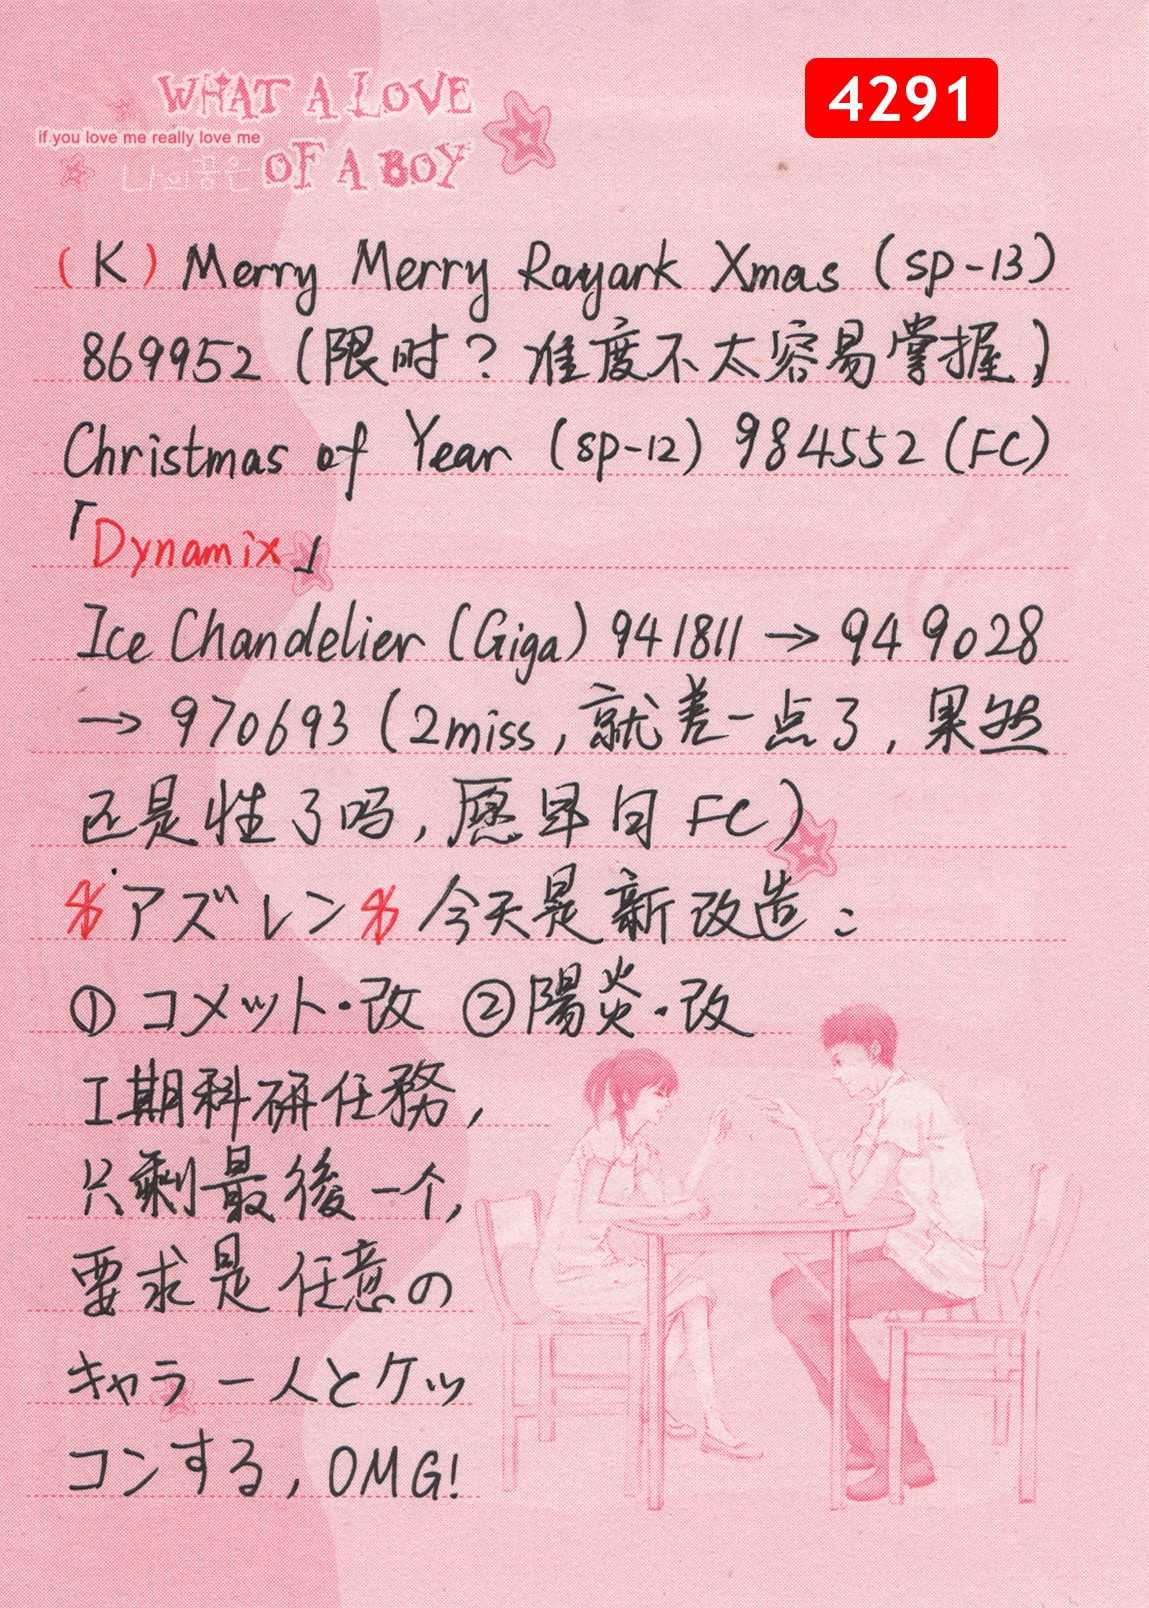 WHAT A LOVE
if you love me really love me
나의꿈은 OF A BOY
4291
(K) Merry Merry Rayark Xmas (sp-13)
869952 (限时？难度不太容易掌握)
Christmas of Year (sp-12) 984552 (FC)
「Dynamix」
Ice Chandelier (Giga) 941811 → 949028
→ 970693 (2miss, 就差一点了, 果然
还是性了吗, 愿早日 FC)
アズレン 今天是新改造:
① コメット·改 ② 陽炎·改
I期科研任務,
只剩最後一个,
要求是任意の
キャラ一人とケッ
コンする, OMG!